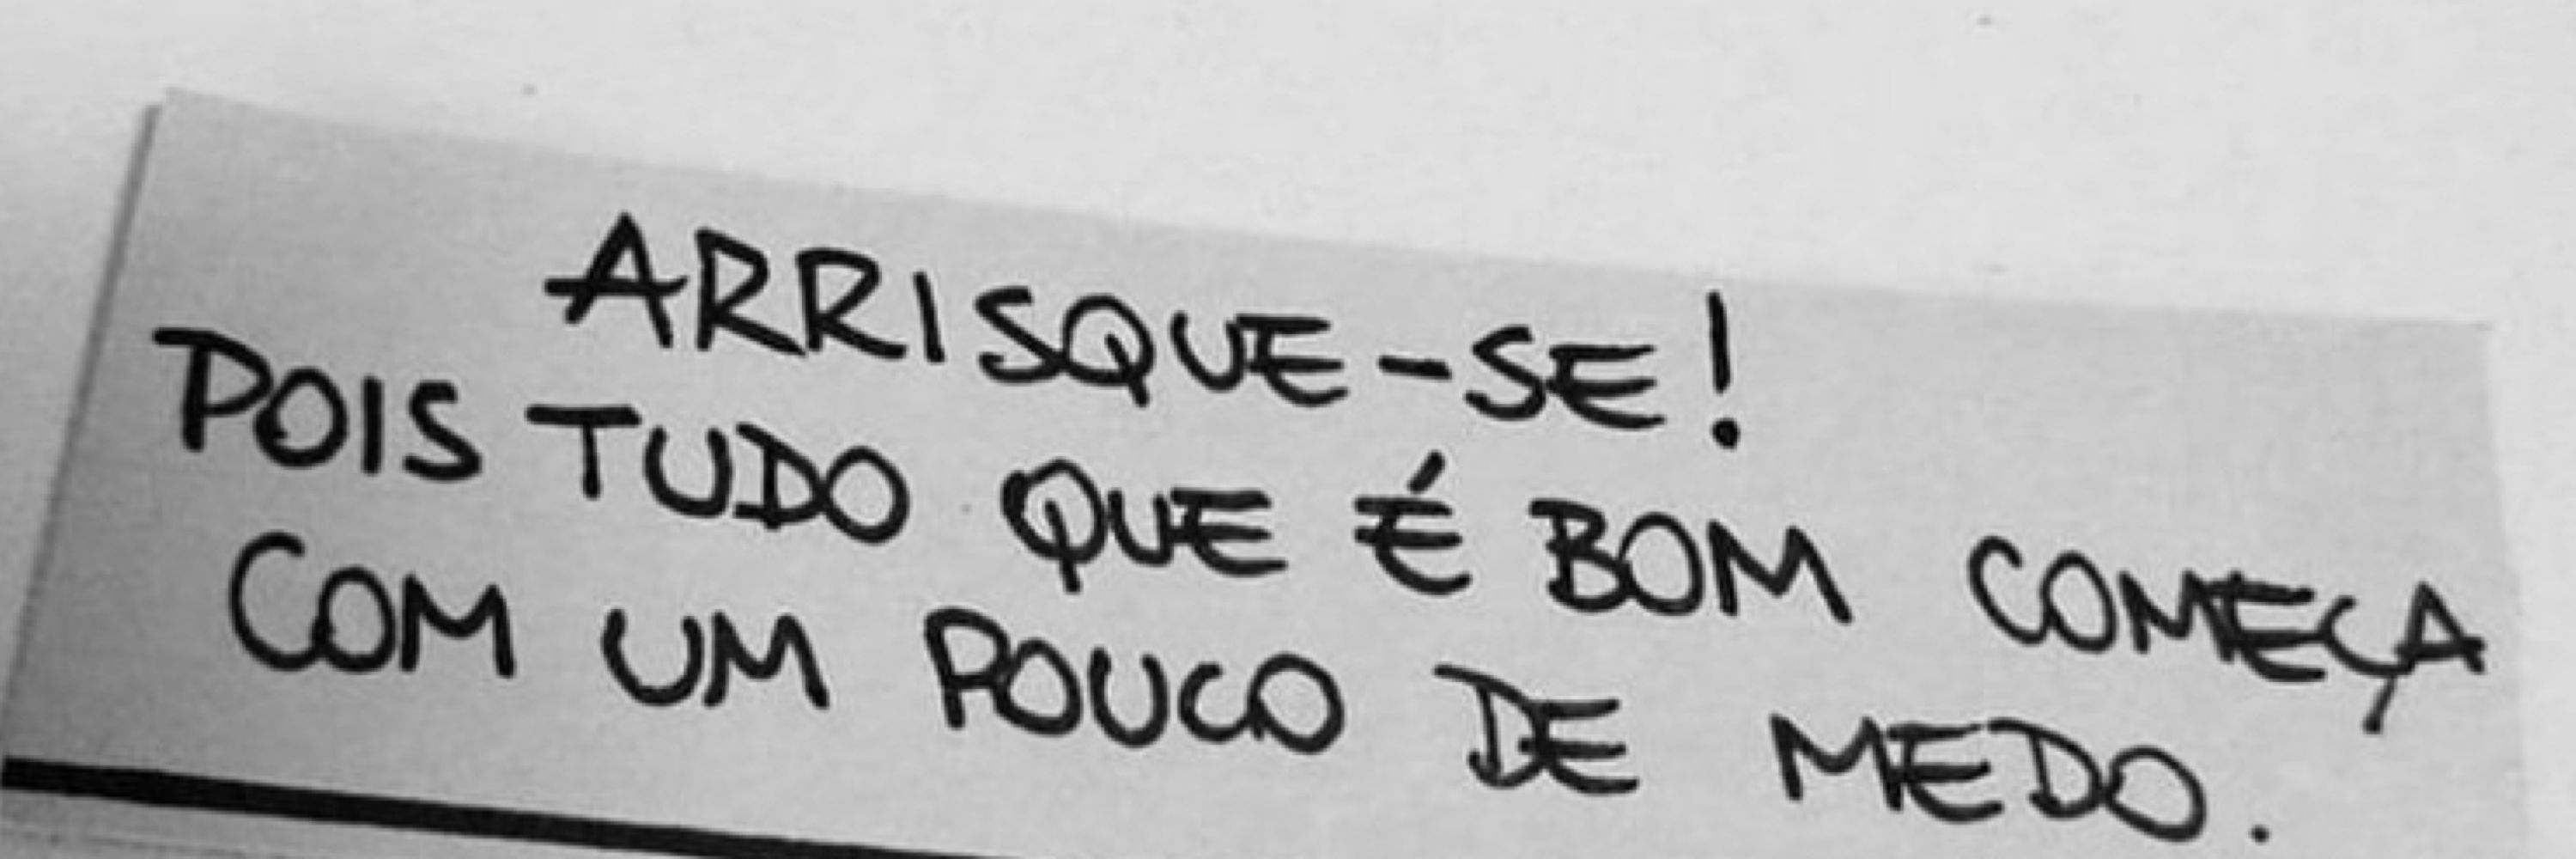 ARRISQUE-SE!
POIS TUDO QUE É BOM COMEÇA
COM UM POUCO DE MEDO.